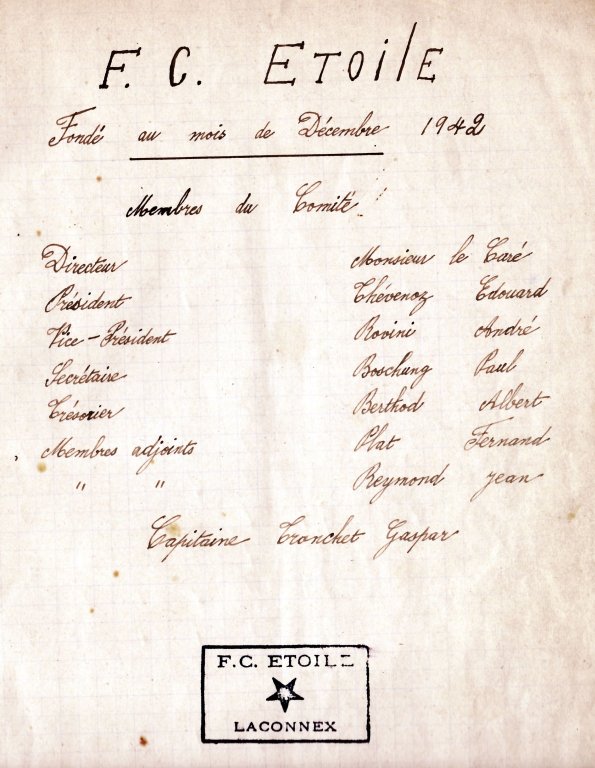 F. C. ETOilE
Fondé au mois de Décembre 1942
Membres du Comité
Directeur Monsieur le Curé
Président Thévenoz Edouard
Vice-Président Rovini André
Secrétaire Boschung Paul
Trésorier Berthod Albert
Membres adjoints Plat Fernand
" " Reymond Jean
Capitaine Tronchet Gaspar
F.C. ETOILE
LACONNEX